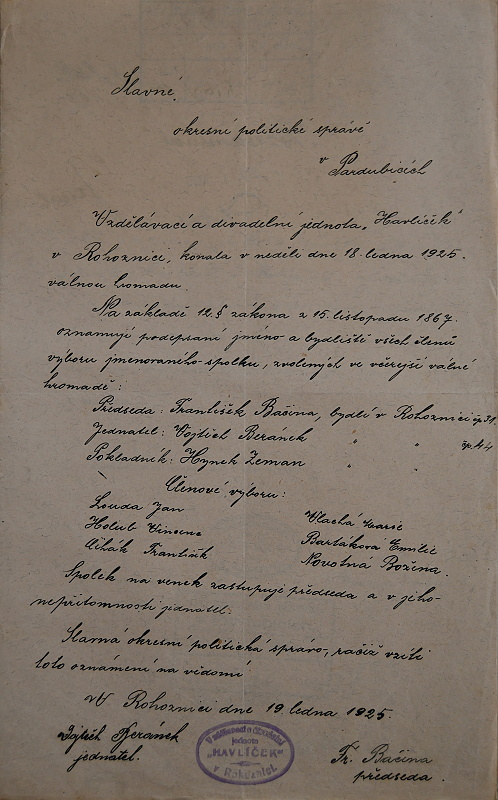 Slavné
okresní politické správě
v Pardubicích
Vzdělávací a divadelní jednota „Havlíček“
v Rohoznici, konala v neděli dne 18. ledna 1925.
válnou hromadu.
Na základě 12.§ zákona z 15. listopadu 1867.
oznamují podepsaní jméno a bydliště všech členů
výboru jmenovaného spolku, zvolených ve včerejší válné
hromadě:
Předseda: František Bačina, bydlí v Rohoznici čp 31.
Jednatel: Vojtěch Beránek " " čp. 44
Pokladník: Hynek Zeman " "
Členové výboru:
Louda Jan Vlachá Marie
Holub Vincenc Bartáková Emilie
Cihák František Novotná Božena.
Spolek na venek zastupuje předseda a v jeho
nepřítomnosti jednatel.
Slavná okresní politická správo, račiž vzíti
toto oznámení na vědomí
V Rohoznici dne 19. ledna 1925.
Vojtěch Beránek
jednatel.
Vzdělávací a divadelní
jednota
„HAVLÍČEK“
v Rohoznici.
Fr. Bačina
předseda.